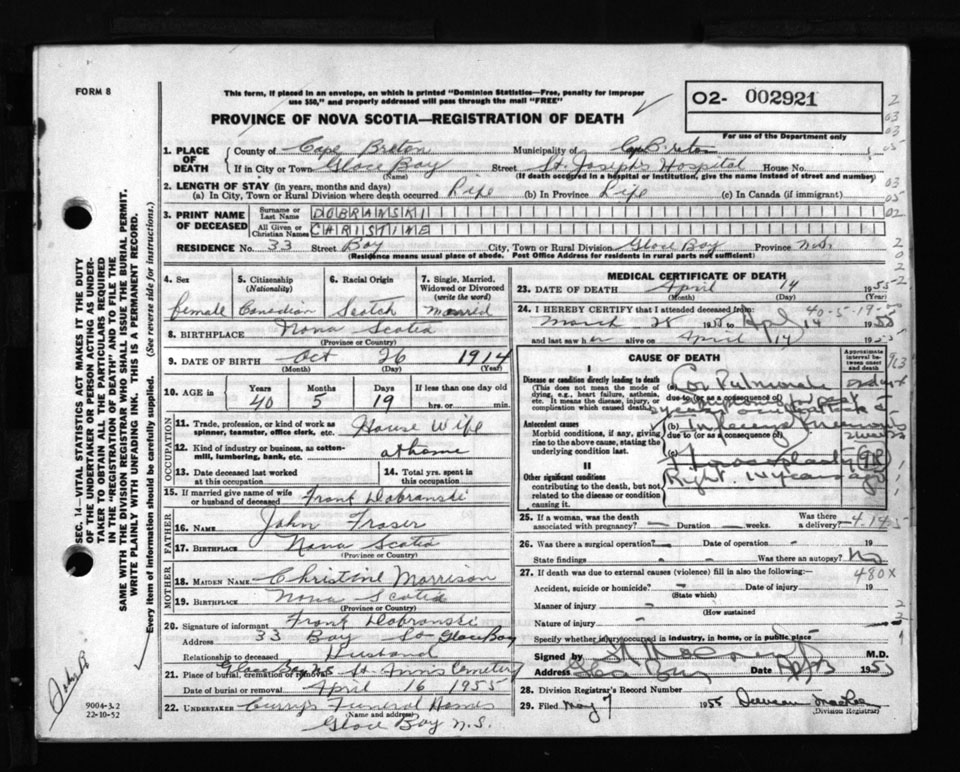 FORM 8
This form, if placed in an envelope, on which is printed "Dominion Statistics—Free, penalty for improper
use $50," and properly addressed will pass through the mail "FREE"
PROVINCE OF NOVA SCOTIA—REGISTRATION OF DEATH
O2- 002921
For use of the Department only
1. PLACE OF DEATH
County of Cape Breton Municipality of Cape Breton
If in City or Town Glace Bay Street St. Joseph's Hospital House No.
(Name) (If death occurred in a hospital or institution, give the name instead of street and number)
2. LENGTH OF STAY (in years, months and days)
(a) In City, Town or Rural Division where death occurred Life (b) In Province Life (c) In Canada (if immigrant)
3. PRINT NAME OF DECEASED
Surname or Last Name DOBRANSKI
All Given or Christian Names CHRISTINE
RESIDENCE No. 33 Street Bay City, Town or Rural Division Glace Bay Province N.S.
(Residence means usual place of abode. Post Office Address for residents in rural parts not sufficient)
4. Sex
female
5. Citizenship (Nationality)
Canadian
6. Racial Origin
Scotch
7. Single, Married, Widowed or Divorced (write the word)
Married
8. BIRTHPLACE Nova Scotia
(Province or Country)
9. DATE OF BIRTH Oct 26 1914
(Month) (Day) (Year)
10. AGE is in Years Months Days If less than one day old
40 5 19 hrs. or min.
OCCUPATION
11. Trade, profession, or kind of work as spinner, teamster, office clerk, etc. House Wife
12. Kind of industry or business, as cotton-mill, lumbering, bank, etc. at home
13. Date deceased last worked at this occupation
14. Total yrs. spent in this occupation
15. If married give name of wife or husband of deceased Frank Dobranski
FATHER
16. NAME John Fraser
17. BIRTHPLACE Nova Scotia
(Province or Country)
MOTHER
18. MAIDEN NAME Christine Morrison
19. BIRTHPLACE Nova Scotia
(Province or Country)
20. Signature of informant Frank Dobranski
Address 33 Bay St Glace Bay
Relationship to deceased Husband
21. Place of burial, cremation or removal Glace Bay N.S St Ann's Cemetery
Date of burial or removal April 16 1955
22. UNDERTAKER Curry's Funeral Home
(Name and address)
Glace Bay N.S.
MEDICAL CERTIFICATE OF DEATH
23. DATE OF DEATH April 14 1955
(Month) (Day) (Year)
40-5-19
24. I HEREBY CERTIFY that I attended deceased from:
March 28 1955 to Apl 14 1955
and last saw her alive on April 14 1955
CAUSE OF DEATH
Approximate interval between onset and death
I
Disease or condition directly leading to death
(This does not mean the mode of dying, e.g., heart failure, asthenia, etc. It means the disease, injury, or complication which caused death)
(a) Cor Pulmonale
due to (or as a consequence of)
Antecedent causes
Morbid conditions, if any, giving rise to the above cause, stating the underlying condition last.
(b) Influenza Pneumonia
due to (or as a consequence of)
2 weeks
II
Other significant conditions
contributing to the death, but not related to the disease or condition causing it.
Right
25. If a woman, was the death associated with pregnancy? — Duration — weeks. Was there a delivery?
26. Was there a surgical operation? — Date of operation 19
State findings Was there an autopsy? No
27. If death was due to external causes (violence) fill in also the following:— 480X
Accident, suicide or homicide? Date of injury 19
(State which)
Manner of injury
(How sustained
Nature of injury
Specify whether injury occurred in industry, in home, or in public place
Signed by M.D.
Address Glace Bay Date 1955
28. Division Registrar's Record Number
29. Filed May 7 1955
(Division Registrar)
SEC. 14—VITAL STATISTICS ACT MAKES IT THE DUTY
OF THE UNDERTAKER OR PERSON ACTING AS UNDER-
TAKER TO OBTAIN ALL THE PARTICULARS REQUIRED
IN THE "REGISTRATION OF DEATH" AND TO FILE THE
SAME WITH THE DIVISION REGISTRAR WHO SHALL ISSUE THE BURIAL PERMIT.
WRITE PLAINLY WITH UNFADING INK. THIS IS A PERMANENT RECORD.
Every item of information should be carefully supplied. (See reverse side for instructions.)
9004-3.2
22-10-52